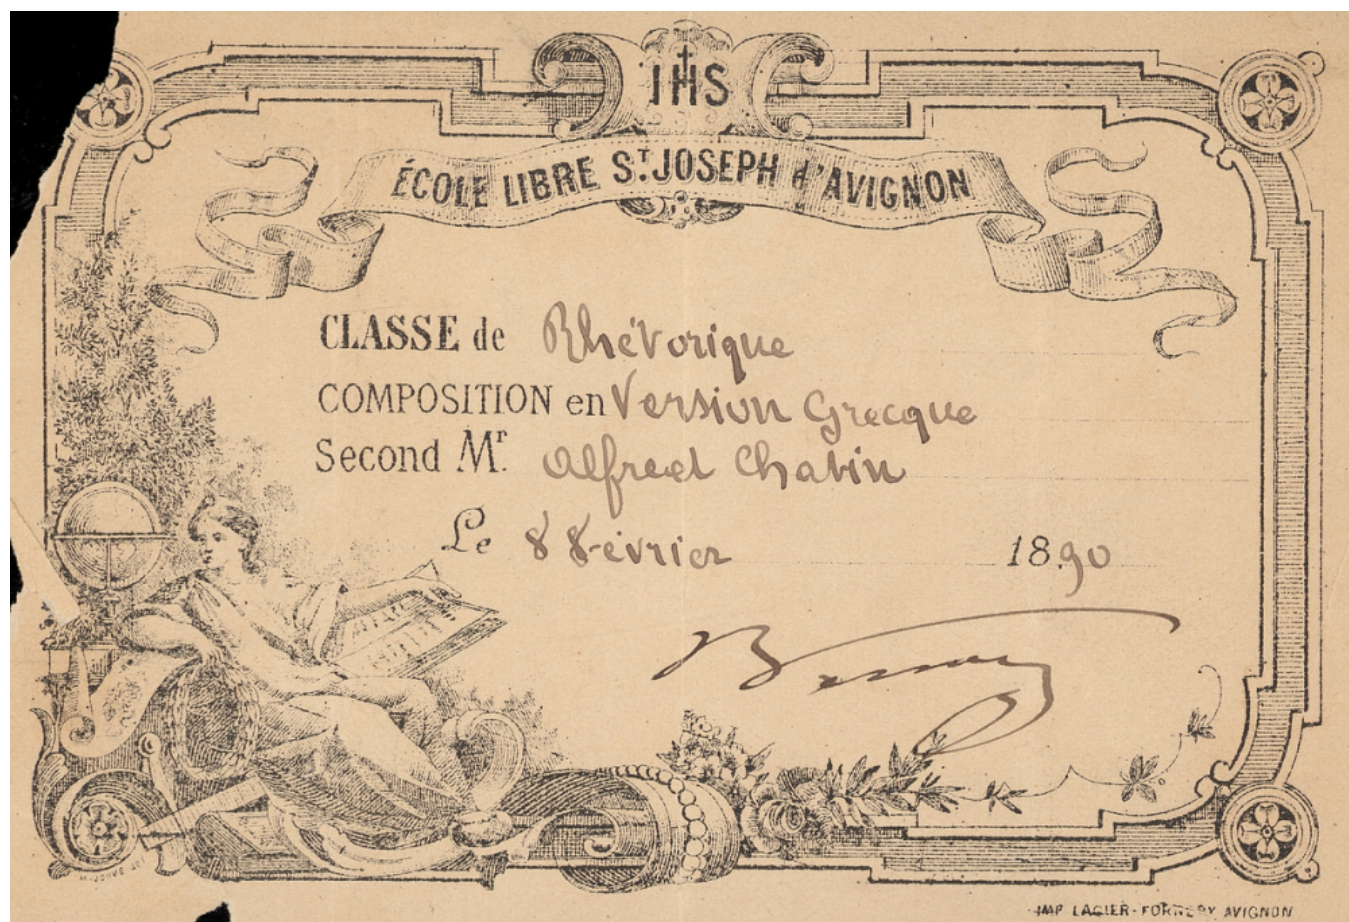 IHS
ÉCOLE LIBRE ST. JOSEPH d'AVIGNON
CLASSE de Rhétorique
COMPOSITION en Version Grecque
Second Mr. Alfred Chabin
Le 8 Février 1890
IMP. LAGIER-FORNERY AVIGNON